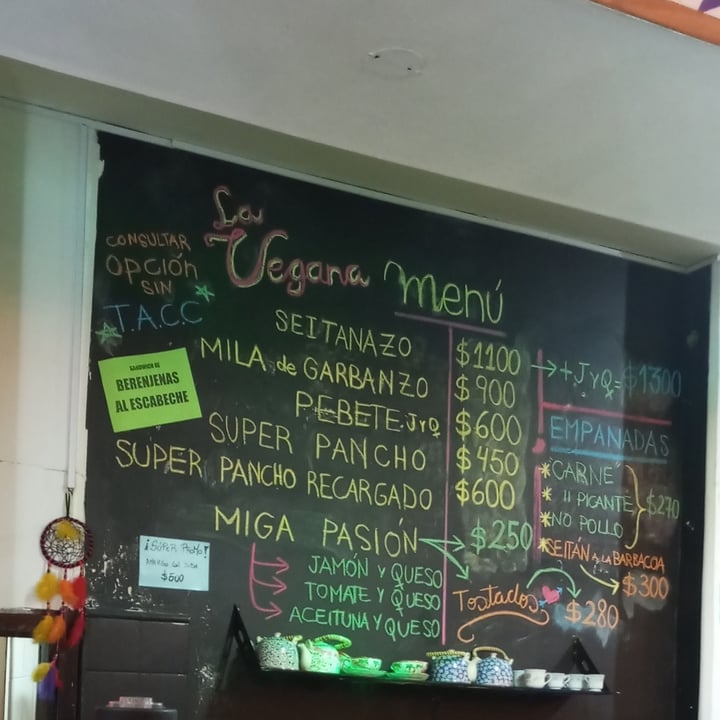 La
Vegana Menú
CONSULTAR
OPCIÓN
SIN
T.A.C.C
SANDWICH DE
BERENJENAS
AL ESCABECHE
SEITANAZO $1100 → + JyQ = $1300
MILA de GARBANZO $900
PEBETE JyQ $600
SUPER PANCHO $450
SUPER PANCHO RECARGADO $600
MIGA PASIÓN → $250
JAMÓN Y QUESO
TOMATE Y QUESO
ACEITUNA Y QUESO
Tostados $280
EMPANADAS
*"CARNE"
* 11 PICANTE $270
*NO POLLO
*SEITÁN A LA BARBACOA
$300
¡SÚPER PROMO!
$500